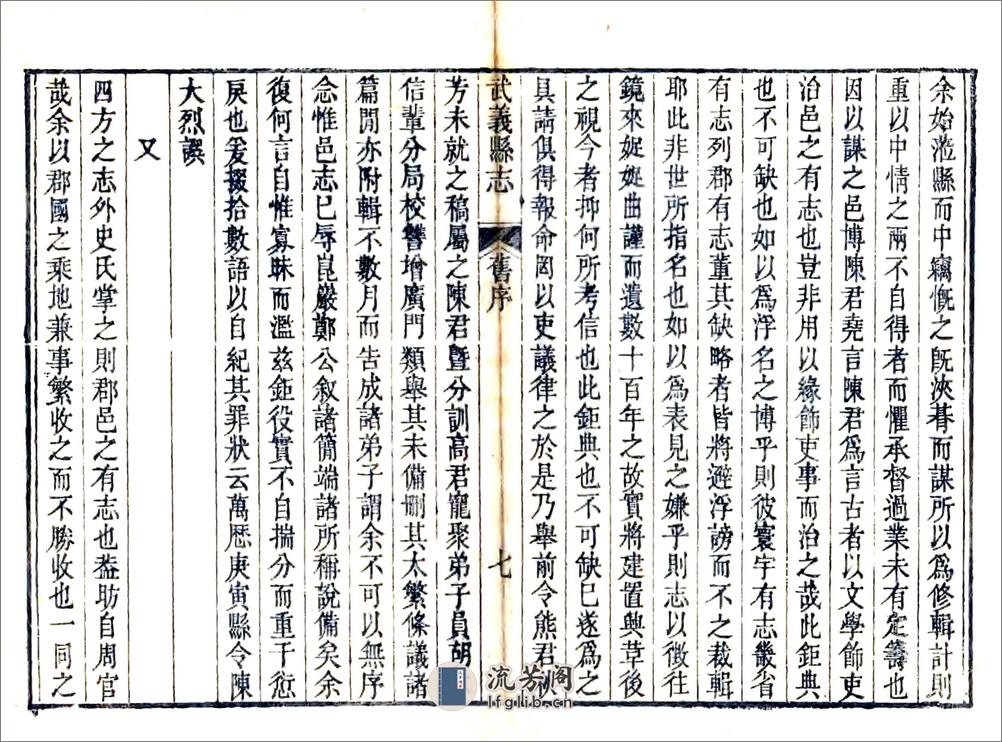 余始蒞縣而中竊慨之既浹朞而謀所以爲修輯計則
重以中情之兩不自得者而懼承督過業未有定籌也
因以謀之邑博陳君堯言陳君爲言古者以文學飾吏
治邑之有志也豈非用以緣飾吏事而治之哉此鉅典
也不可缺也如以爲浮名之博乎則彼寰宇有志畿省
有志列郡有志董其缺略者皆將避浮謗而不之裁輯
耶此非世所指名也如以爲表見之嫌乎則志以徵往
鏡來娖娖曲謹而遺數十百年之故實將建置典草後
之視今者抑何所考信也此鉅典也不可缺已遂爲之
具請俱得報命罔以吏議律之於是乃舉前令熊君秋
武義縣志 舊序 七
芳未就之稿屬之陳君暨分訓高君寵聚弟子員胡
信輩分局校讐增廣門類舉其未備刪其太繁條議諸
篇閒亦附輯不數月而告成諸弟子謂余不可以無序
念惟邑志已辱崑巖鄭公叙諸簡端諸所稱說備矣余
復何言自惟寡昧而濫茲鉅役實不自揣分而重干愆
戾也爰掇拾數語以自紀其罪狀云萬歷庚寅縣令陳
大烈譔
又
四方之志外史氏掌之則郡邑之有志也葢昉自周官
哉余以郡國之乘地兼事繁收之而不勝收也一同之
流芳阁
lfglib.cn